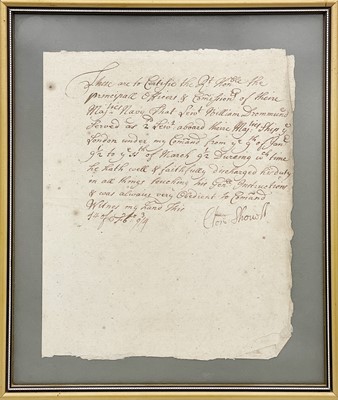 These are to Certifie the Rt Honble the
Principall Officers & Comissionrs of there
Majties Navy That Lievt William Drommund
Served as 2d Lievt aboard there Majties Ship ye
London under my Comand from ye 9th of Janry
91/2 to ye th of March 92 During wch time
he hath well & faithfully discharged his duty
in all things touching his Genll Instructions
& was always very Obedient to Comand
Witnes my hand This
14th of 94
Clowd Shovell